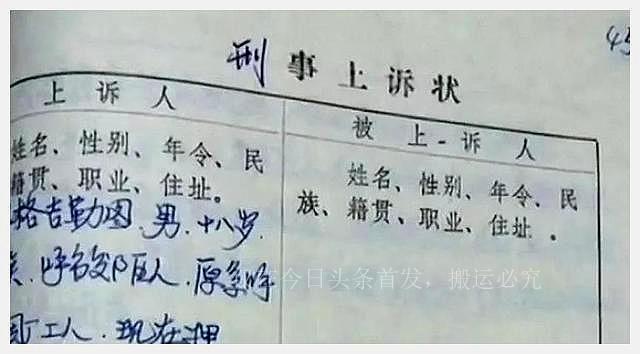 45
刑事上诉状
上诉人
被上-诉人
姓名、性别、年令、民
籍贯、职业、住址。
姓名、性别、年令、民
族、籍贯、职业、住址。
格吉勒图.男.十八岁.
呼市郊区人.原系呼
今日头条首发，搬运必究
工人.现在押